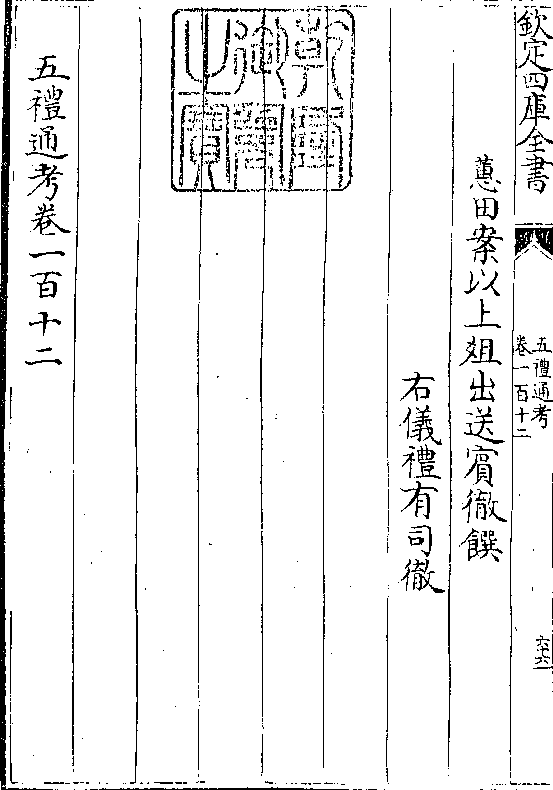 欽定四庫全書
五禮通考
卷一百十二
蕙田案以上俎出送賓徹饌
右儀禮有司徹
乾隆
御覽
之寶
五禮通考卷一百十二